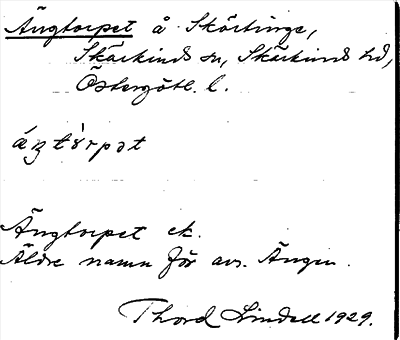 Ängtorpet å Skärtinge,
Skärkinds sn, Skärkinds hd,
Östergötl. l.
áŋtɤ̀rpət
Ängtorpet ek.
Äldre namn för avs. Ängen.
Thord Lindell 1929.